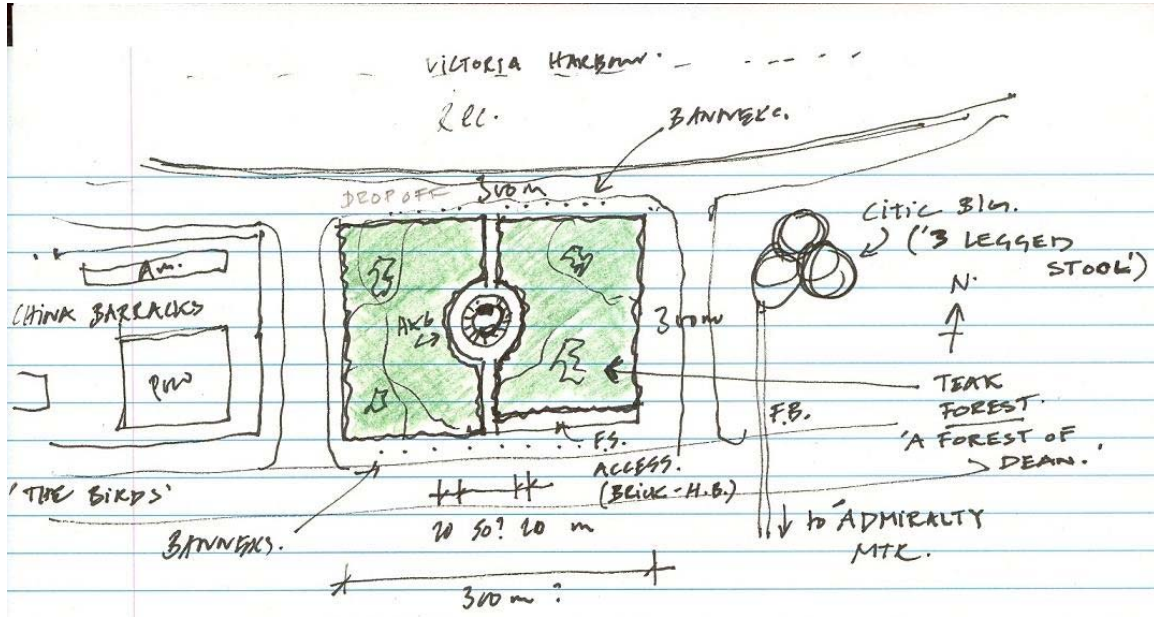 VICTORIA HARBOUR.
REC.
BANNERS.
DROP OFF
300 m
CITIC Bldg.
('3 LEGGED
STOOL')
N.
CHINA BARRACKS
300m
TEAK
FOREST.
'A FOREST OF
DEAN.'
F.B.
F.S.
ACCESS.
(BRICK-H.B.)
'THE BIRDS'
20 50? 20 m
to ADMIRALTY
MTR.
BANNERS.
300 m?